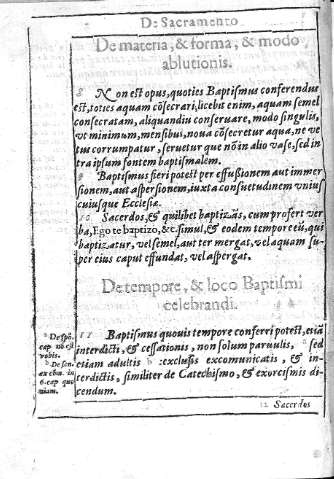 D: Sacramento
De materia, & forma, & modo
ablutionis.
8 Non est opus, quoties Baptismus conferendus
est, toties aquam cōsecrari, licebit enim, aquam semel
consecratam, aliquandiu conseruare, modo singulis,
vt minimum, mensibus, noua cōsecretur aqua, ne ve
tus corrumpatur, seruetur que nō in alio vase, sed in
tra ipsum fontem baptismalem.
9 Baptismus fieri potest per effussionem aut immer
sionem, aut aspersionem, iuxta consuetudinem vnius
cuiusque Ecclesiæ.
10 Sacerdos, & quilibet baptizās, cum profert ver
ba, Ego te baptizo, &c. simul, & eodem tempore eū, qui
baptizatur, vel semel, aut ter mergat, vel aquam su-
per eius caput effundat, vel aspergat.
De tempore, & loco Baptismi
celebrandi.
11 Baptismus quouis tempore conferri potest, etiā
interdicti, & cessationis, non solum paruulis, sed
etiam adultis exclusis excomunicatis, & in-
terdictis, similiter de Catechismo, & exorcismis di-
cendum.
a De spō.
cap. nō est
vobis.
b De sen.
ex cōm. in
6. cap. quo
niam.
12 Sacerdos